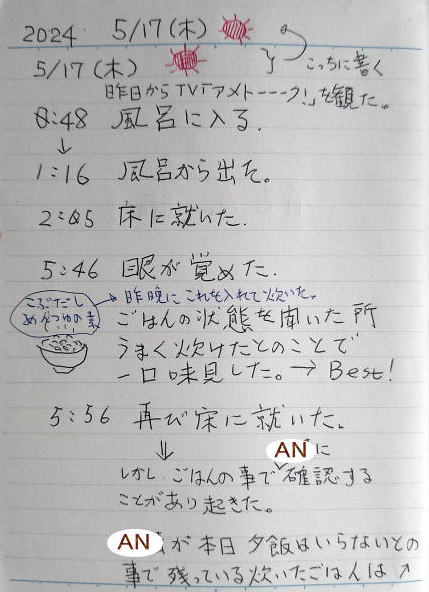 2024 5/17(木)
5/17(木) こっちに書く
昨日からTV「アメトーーーク!」を観た。
0:48 風呂に入る.
1:16 風呂から出た。
2:05 床に就いた.
5:46 眼が覚めた.
こぶだし
めんつゆの素
昨晩にこれを入れて炊いた。
ごはんの状態を聞いた所
うまく炊けたとのことで
一口味見した。→Best!
5:56 再び床に就いた.
⇓ ANに
しかし.ごはんの事で確認する
ことがあり起きた。
AN が本日夕飯はいらないとの
事で残っている炊いたごはんは↗